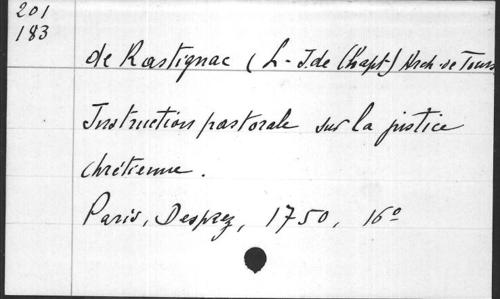 201
183
de Rastignac (L-J. de Chapt) Arch. de Tours
Instruction pastorale sur la justice
chrétienne.
Paris, Desprez, 1750, 16º